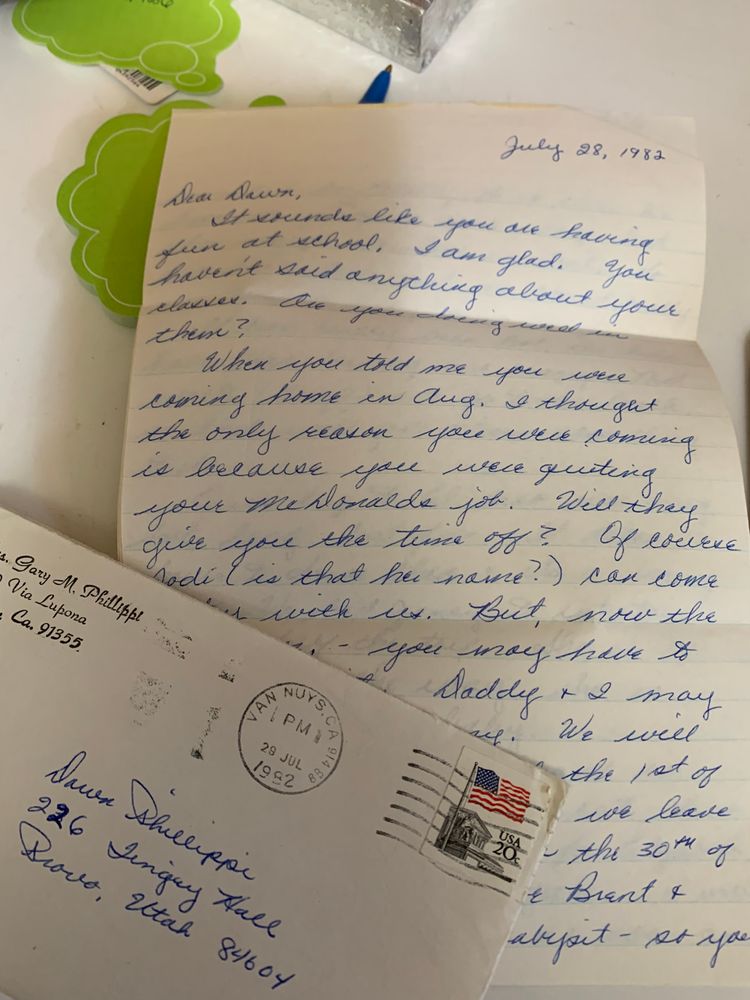 July 28, 1982
Dear Dawn,
It sounds like you are having
fun at school. I am glad. You
haven't said anything about your
classes. Are you doing well in
them?
When you told me you were
coming home in Aug. I thought
the only reason you were coming
is because you were quiting
your McDonalds job. Will they
give you the time off? Of course
Jodi (is that her name?) can come
with us. But, now the
- you may have to
Daddy & I may
We will
the 1st of
we leave
- the 30th of
Brent &
- so you
s. Gary M. Phillippi
Via Lupona
Ca. 91355
VAN NUYS, CA 914
PM
28 JUL
1982
USA
20c
Dawn Phillippi
226 Tingey Hall
Provo, Utah 84604